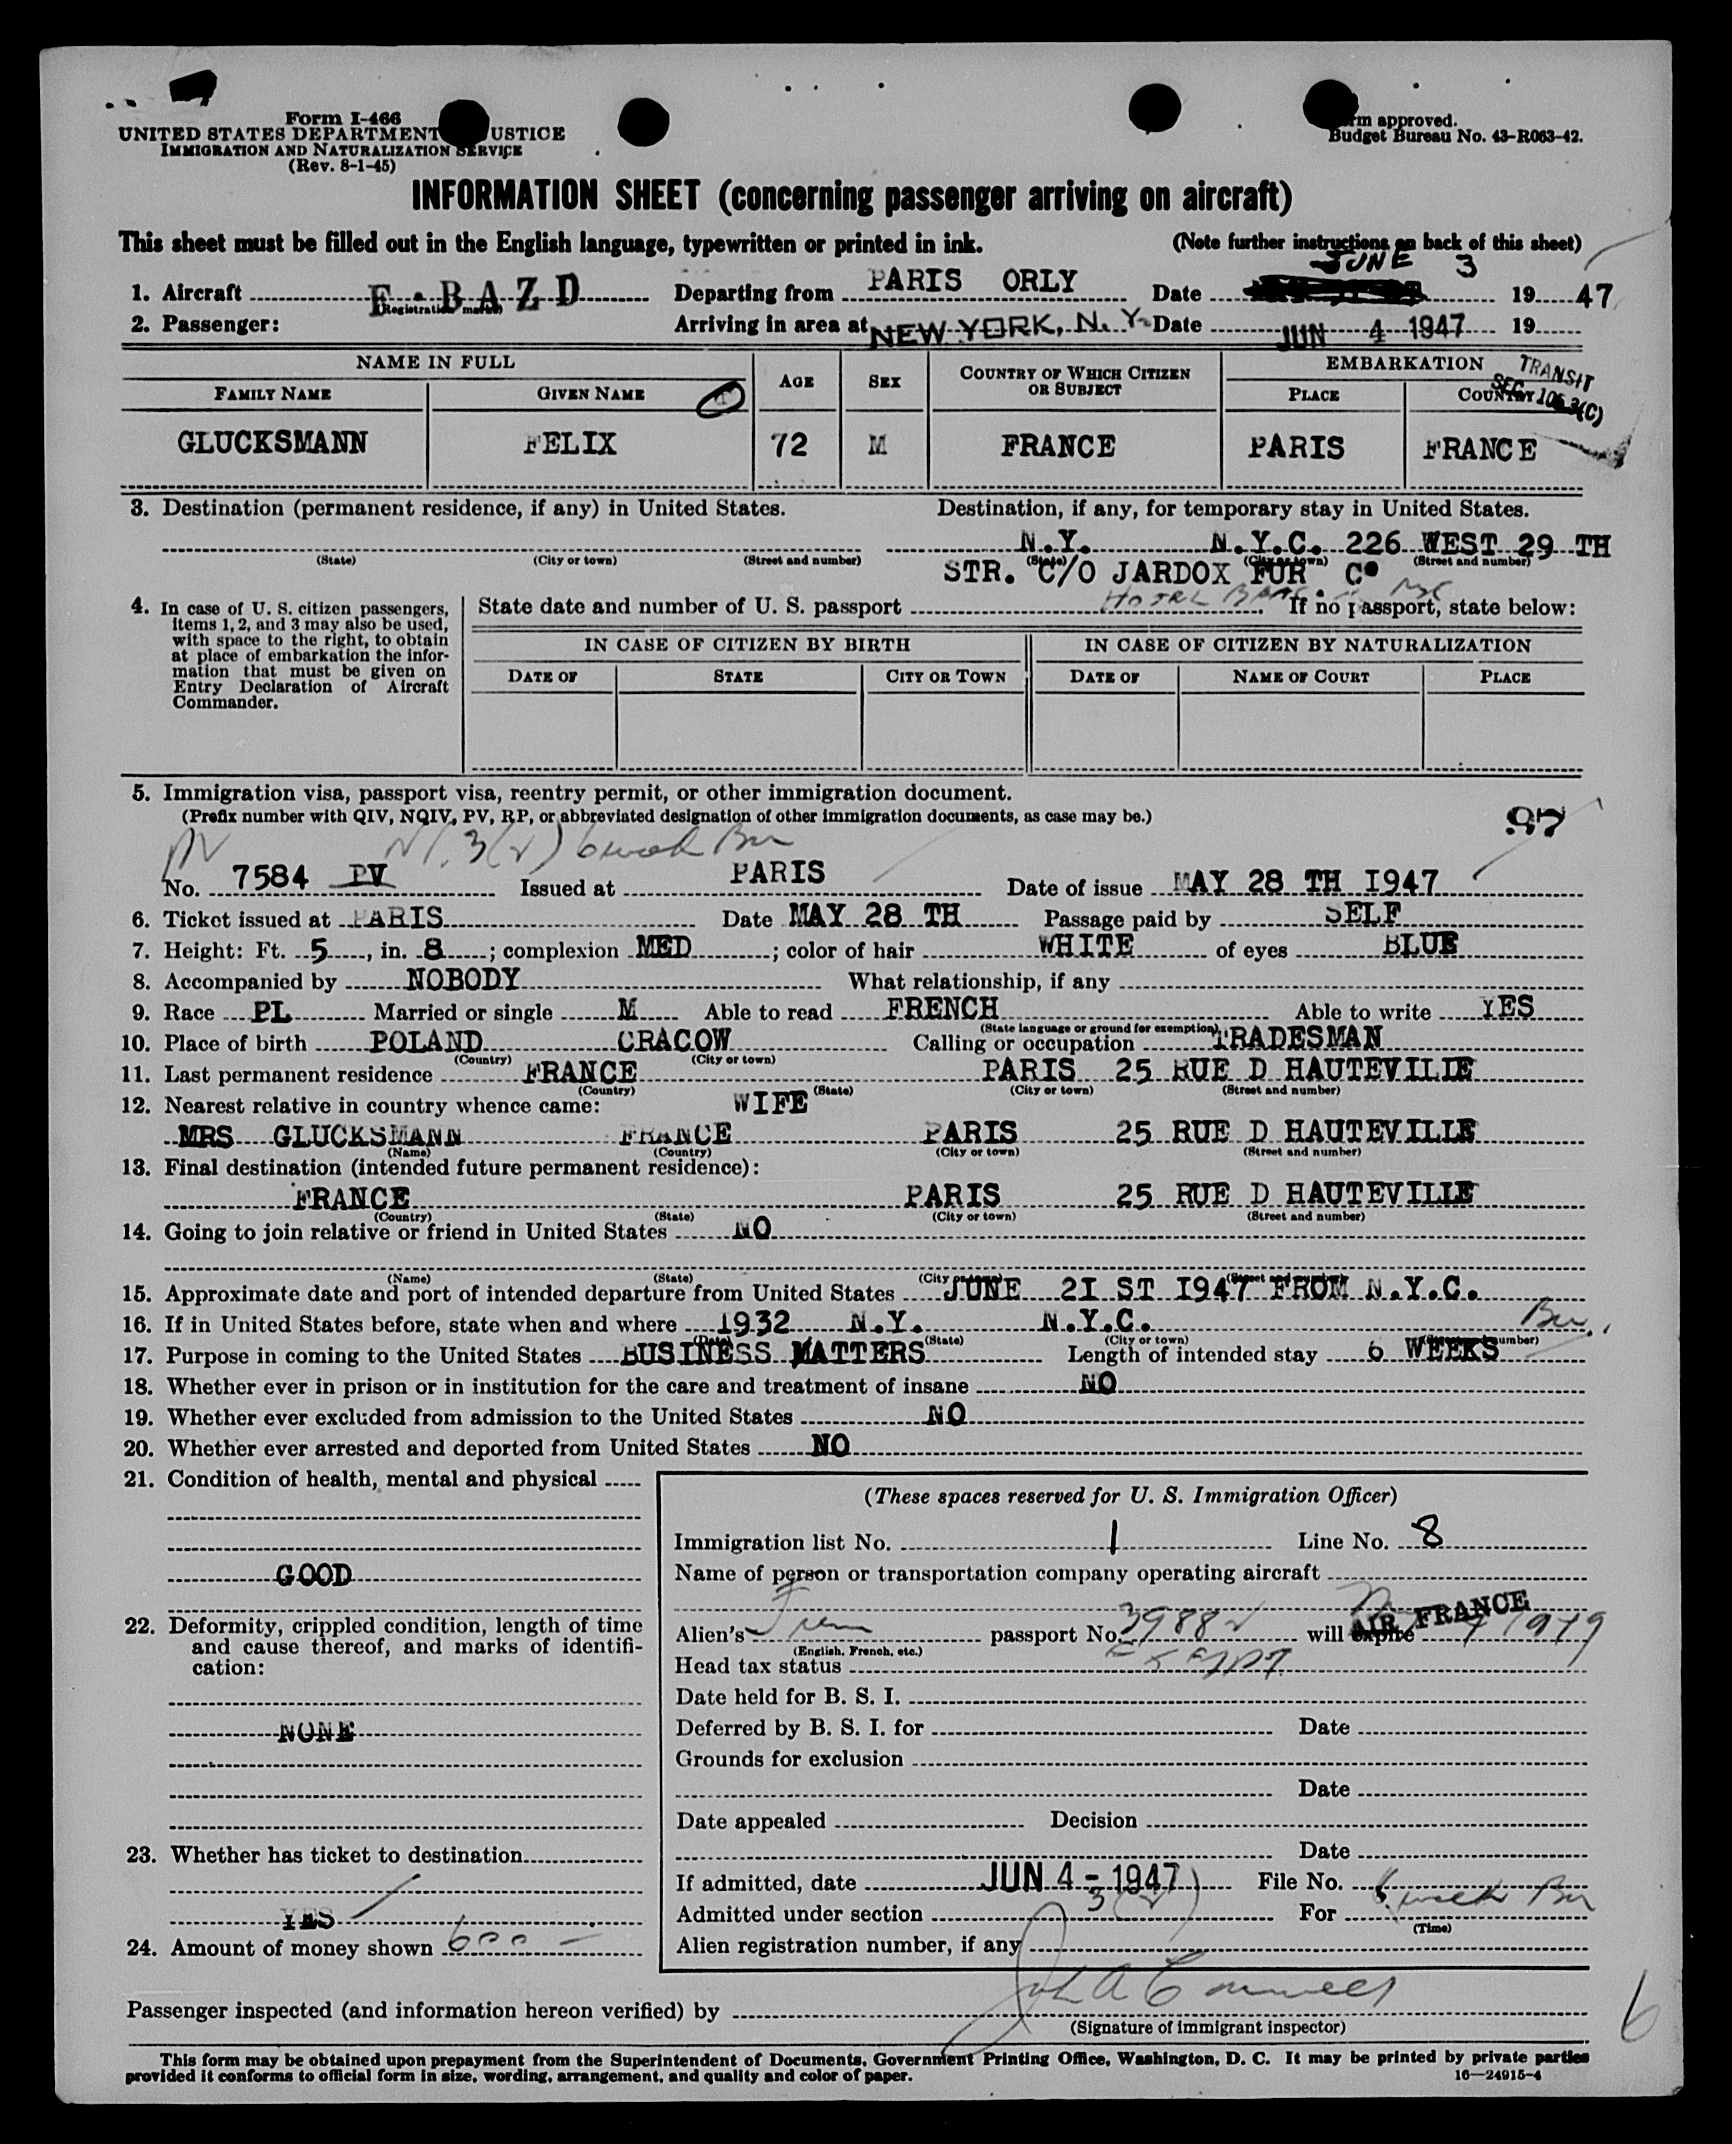 Form I-466
UNITED STATES DEPARTMENT USTICE
IMMIGRATION AND NATURALIZATION SERVICE
(Rev. 8-1-45)
rm approved.
Budget Bureau No. 43-R063-42.
INFORMATION SHEET (concerning passenger arriving on aircraft)
This sheet must be filled out in the English language, typewritten or printed in ink. (Note further instructions on back of this sheet)
1. Aircraft F.BAZD (Registration marks) Departing from PARIS ORLY Date JUNE 3 1947
2. Passenger: Arriving in area at NEW YORK, N. Y. Date JUN 4 1947 19
NAME IN FULL AGE SEX COUNTRY OF WHICH CITIZEN OR SUBJECT EMBARKATION TRANSIT
FAMILY NAME GIVEN NAME PLACE COUNTRY SEC 3(C)
GLUCKSMANN FELIX 72 M FRANCE PARIS FRANCE
3. Destination (permanent residence, if any) in United States. Destination, if any, for temporary stay in United States.
N.Y. N.Y.C. 226 WEST 29 TH
(State) (City or town) (Street and number) (State) (City or town) (Street and number)
STR. C/O JARDOX FUR C°
4. In case of U. S. citizen passengers, items 1, 2, and 3 may also be used, with space to the right, to obtain at place of embarkation the information that must be given on Entry Declaration of Aircraft Commander.
State date and number of U. S. passport HOTEL If no passport, state below:
IN CASE OF CITIZEN BY BIRTH IN CASE OF CITIZEN BY NATURALIZATION
DATE OF STATE CITY OR TOWN DATE OF NAME OF COURT PLACE
5. Immigration visa, passport visa, reentry permit, or other immigration document.
(Prefix number with QIV, NQIV, PV, RP, or abbreviated designation of other immigration documents, as case may be.)
97
PV 3(2) 6 week Bu
No. 7584 PV Issued at PARIS Date of issue MAY 28 TH I947
6. Ticket issued at PARIS Date MAY 28 TH Passage paid by SELF
7. Height: Ft. 5, in. 8; complexion MED; color of hair WHITE of eyes BLUE
8. Accompanied by NOBODY What relationship, if any
9. Race PL Married or single M Able to read FRENCH Able to write YES
(State language or ground for exemption)
10. Place of birth POLAND CRACOW Calling or occupation TRADESMAN
(Country) (City or town)
11. Last permanent residence FRANCE PARIS 25 RUE D HAUTEVILLE
(Country) (State) (City or town) (Street and number)
12. Nearest relative in country whence came: WIFE
MRS GLUCKSMANN FRANCE PARIS 25 RUE D HAUTEVILLE
(Name) (Country) (City or town) (Street and number)
13. Final destination (intended future permanent residence):
FRANCE PARIS 25 RUE D HAUTEVILLE
(Country) (State) (City or town) (Street and number)
14. Going to join relative or friend in United States NO
(Name) (State) (City or town) (Street and number)
15. Approximate date and port of intended departure from United States JUNE 2I ST I947 FROM N.Y.C.
16. If in United States before, state when and where 1932 N.Y. N.Y.C. Bu.
(Date) (State) (City or town) (Street and number)
17. Purpose in coming to the United States BUSINESS MATTERS Length of intended stay 6 WEEKS
18. Whether ever in prison or in institution for the care and treatment of insane NO
19. Whether ever excluded from admission to the United States NO
20. Whether ever arrested and deported from United States NO
21. Condition of health, mental and physical
GOOD
22. Deformity, crippled condition, length of time and cause thereof, and marks of identification:
NONE
23. Whether has ticket to destination
YES
24. Amount of money shown 600 -
(These spaces reserved for U. S. Immigration Officer)
Immigration list No. 1 Line No. 8
Name of person or transportation company operating aircraft
AIR FRANCE
Alien's passport No. 39882 will expire 1949
(English, French, etc.)
Head tax status EXEMPT
Date held for B. S. I.
Deferred by B. S. I. for Date
Grounds for exclusion
Date
Date appealed Decision
Date
If admitted, date JUN 4 - 1947 File No.
Admitted under section 3 (2) For 6 week Bu
(Time)
Alien registration number, if any
Passenger inspected (and information hereon verified) by
(Signature of immigrant inspector)
6
This form may be obtained upon prepayment from the Superintendent of Documents, Government Printing Office, Washington, D. C. It may be printed by private parties
provided it conforms to official form in size, wording, arrangement, and quality and color of paper. 16—24915-4